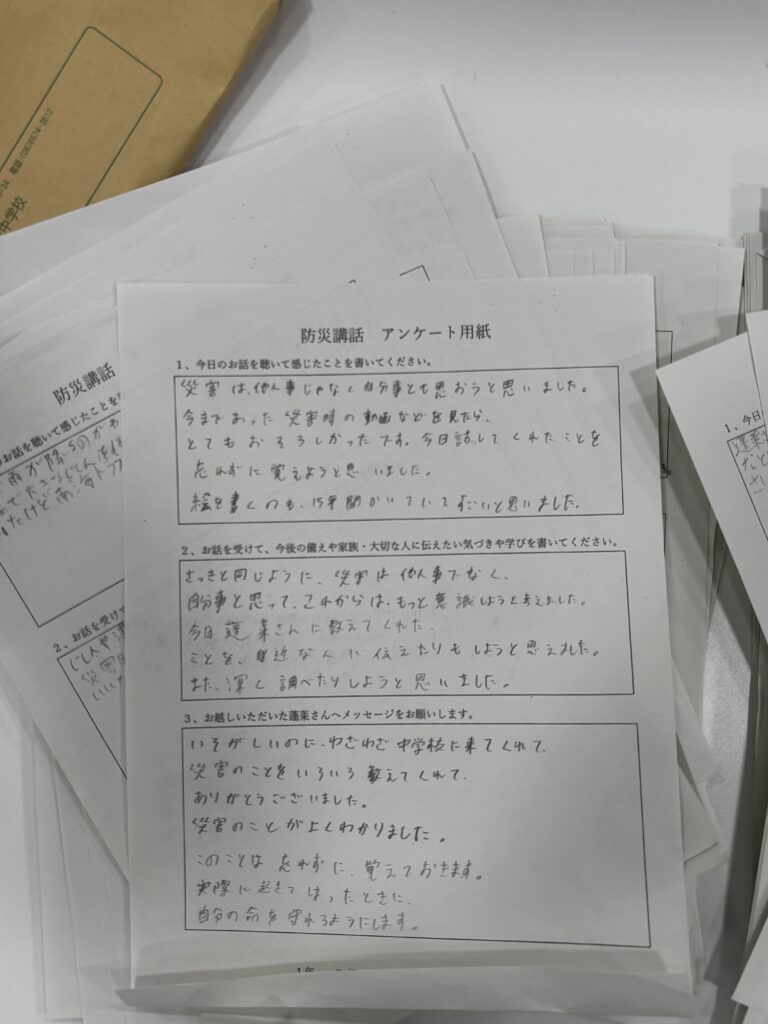 電話：(06)6674-3612
中学校
防災講話 アンケート用紙
1、今日のお話を聴いて感じたことを書いてください。
災害は、他人事じゃなく自分事とも思おうと思いました。
今まであった災害時の動画などを見たら、
とてもおそろしかったです。今日話してくれたことを
忘れずに覚えようと思いました。
絵を書くのも、15年間かいていてすごいと思いました。
2、お話を受けて、今後の備えや家族・大切な人に伝えたい気づきや学びを書いてください。
さっきと同じように、災害は他人事でなく、
自分事と思って、これからは、もっと意識しようと考えました。
今日蓬莱さんに教えてくれた、
ことを、身近な人に伝えたりもしようと思えました。
また、深く調べたりしようと思いました。
3、お越しいただいた蓬莱さんへメッセージをお願いします。
いそがしいのに、わざわざ中学校に来てくれて、
災害のことをいろいろ教えてくれて、
ありがとうございました。
災害のことがよくわかりました。
このことは忘れずに、覚えておきます。
実際に起きてしまったときに、
自分の命を守れるようにします。
1年
防災講話
お話を聴いて感じたことを
雨が降るのが
2、お話を受けて
災害
1、今日
蓬莱